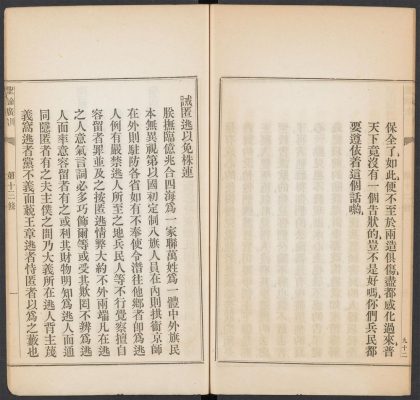 保全了。如此便不至於兩造俱傷。盡都感化過來。普
天下竟沒有一個告狀的。豈不是好嗎。你們兵民都
要遵依着這個話啊。
九十二
聖諭廣訓
第十三條
一
誡匿逃以免株連
朕撫臨億兆合四海爲一家聯萬姓爲一體中外旗民
本無異視第以國初定制八旗人員在內則拱衞京師
在外則駐防各省如有不奉使令潛往他鄉者卽爲逃
人例有嚴禁逃人所至之地兵民人等不行覺察擅自
容留者罪並及之按匿逃情弊大約不外兩端凡在逃
之人意氣言詞必多巧飾爾等或受其欺罔不辨爲逃
人而率意容留者有之或利其財物明知爲逃人而通
同隱匿者有之夫主僕之間乃大義所在逃人背主蔑
義窩逃者黨不義而藐王章逃者恃匿者以爲之藪也